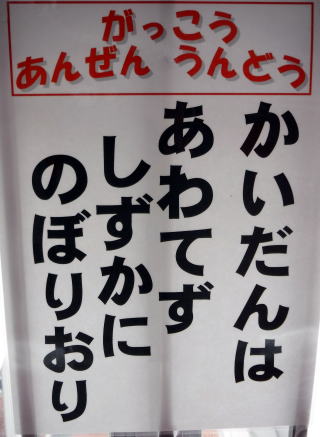 がっこう
あんぜん うんどう
かいだんは
あわてず
しずかに
のぼりおり